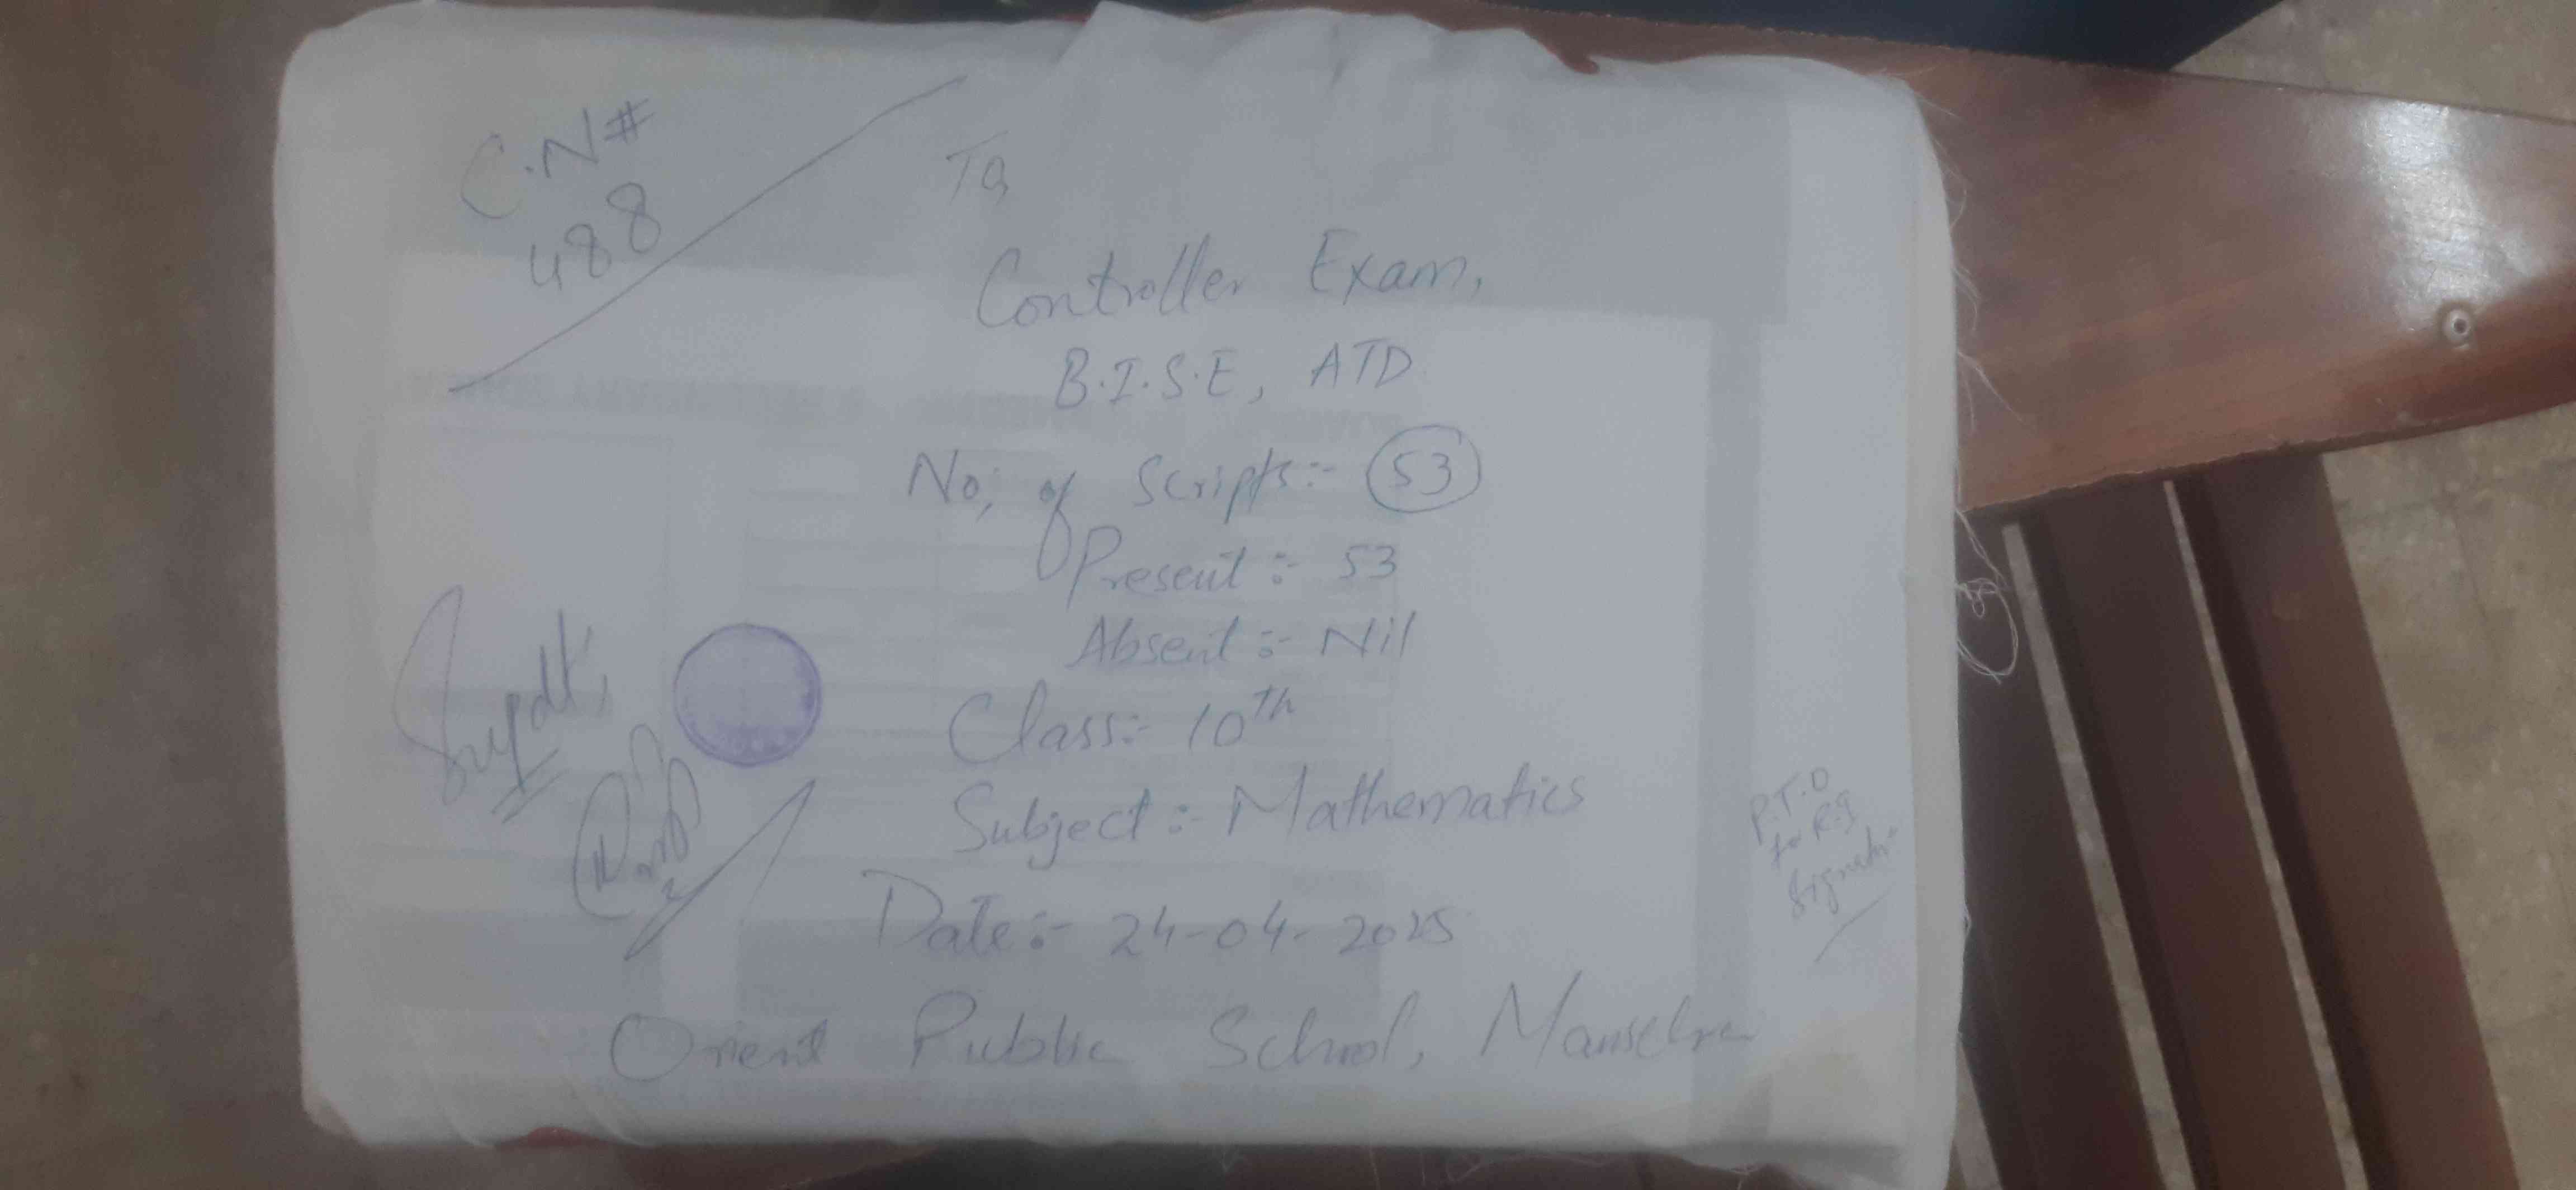 C.N#
488
To,
Controller Exam,
B.I.S.E, ATD
No, of Scripts:- 53
Present :- 53
Absent :- Nil
Class:- 10th
Subject :- Mathematics
Date :- 24-04-2025
Orient Public School, Mansehra
Supdt,
P.T.O
for R.I